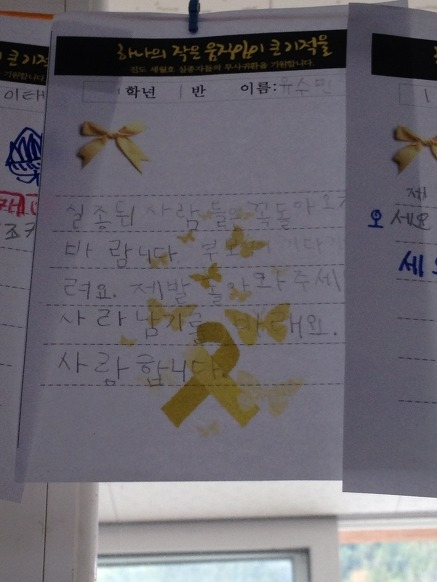 하나의 작은 움직임이 큰 기적을
진도 세월호 실종자들의 무사귀환을 기원합니다.
학년 반 이름: 유수민
실종된 사람들 꼭돌아오
바랍니다. 부모 기다
려요. 제발 돌아와주세
사라남기를 바래요.
사람합니다.
기적을
기원합니다.
이태
제
오 세요
세